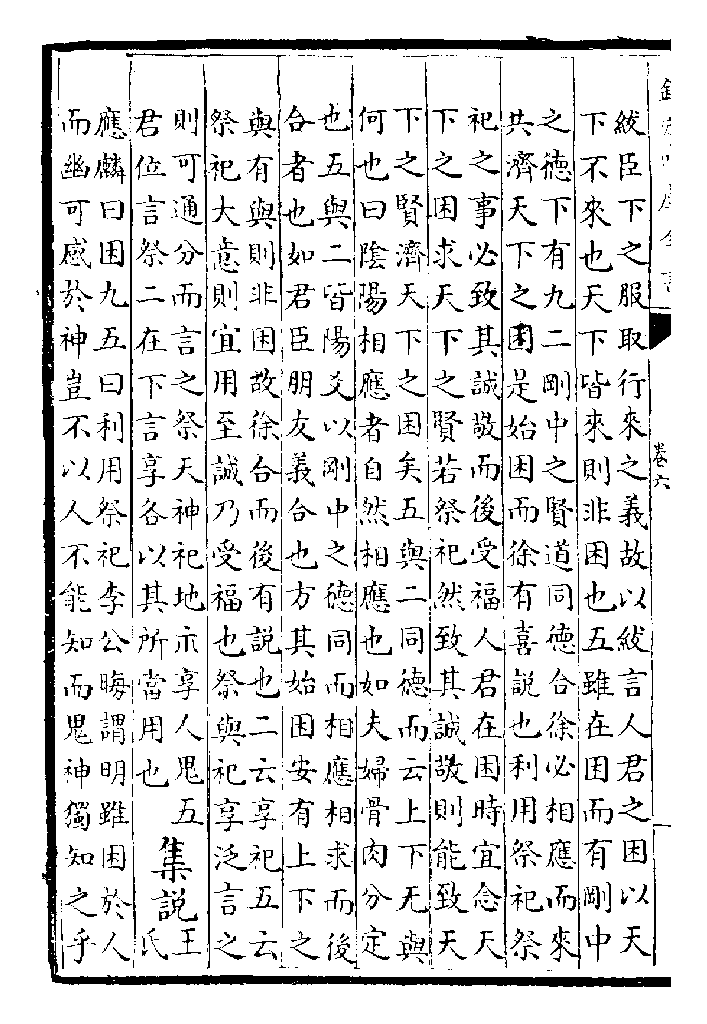 欽定四庫全書
卷六
紱臣下之服取行來之義故以紱言人君之困以天
下不來也天下皆來則非困也五雖在困而有剛中
之德下有九二剛中之賢道同德合徐必相應而來
共濟天下之困是始困而徐有喜說也利用祭祀祭
祀之事必致其誠敬而後受福人君在困時宜念天
下之困求天下之賢若祭祀然致其誠敬則能致天
下之賢濟天下之困矣五與二同德而云上下无與
何也曰陰陽相應者自然相應也如夫婦骨肉分定
也五與二皆陽爻以剛中之德同而相應相求而後
合者也如君臣朋友義合也方其始困安有上下之
與有與則非困故徐合而後有說也二云享祀五云
祭祀大意則宜用至誠乃受福也祭與祀享泛言之
則可通分而言之祭天神祀地示享人鬼五
君位言祭二在下言享各以其所當用也
集說
王
氏
應麟曰困九五曰利用祭祀李公晦謂明雖困於人
而幽可感於神豈不以人不能知而鬼神獨知之乎